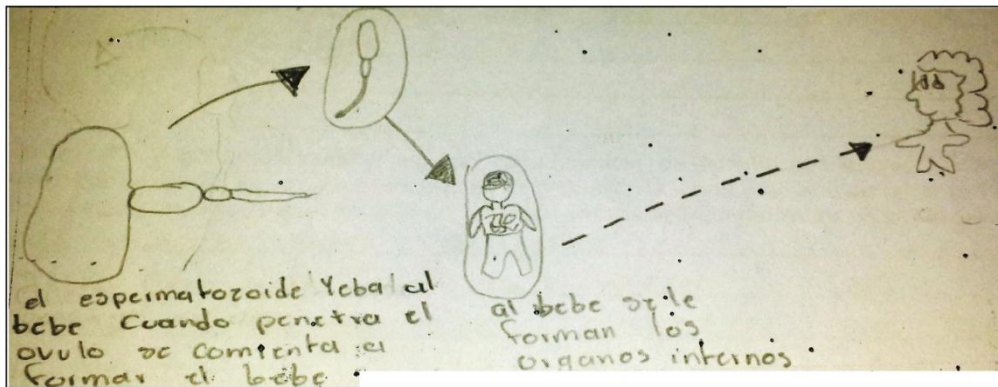 el espermatozoide Yeba al
bebe cuando penetra el
ovulo se comienta a
formar el bebe
al bebe se le
forman los
organos internos.